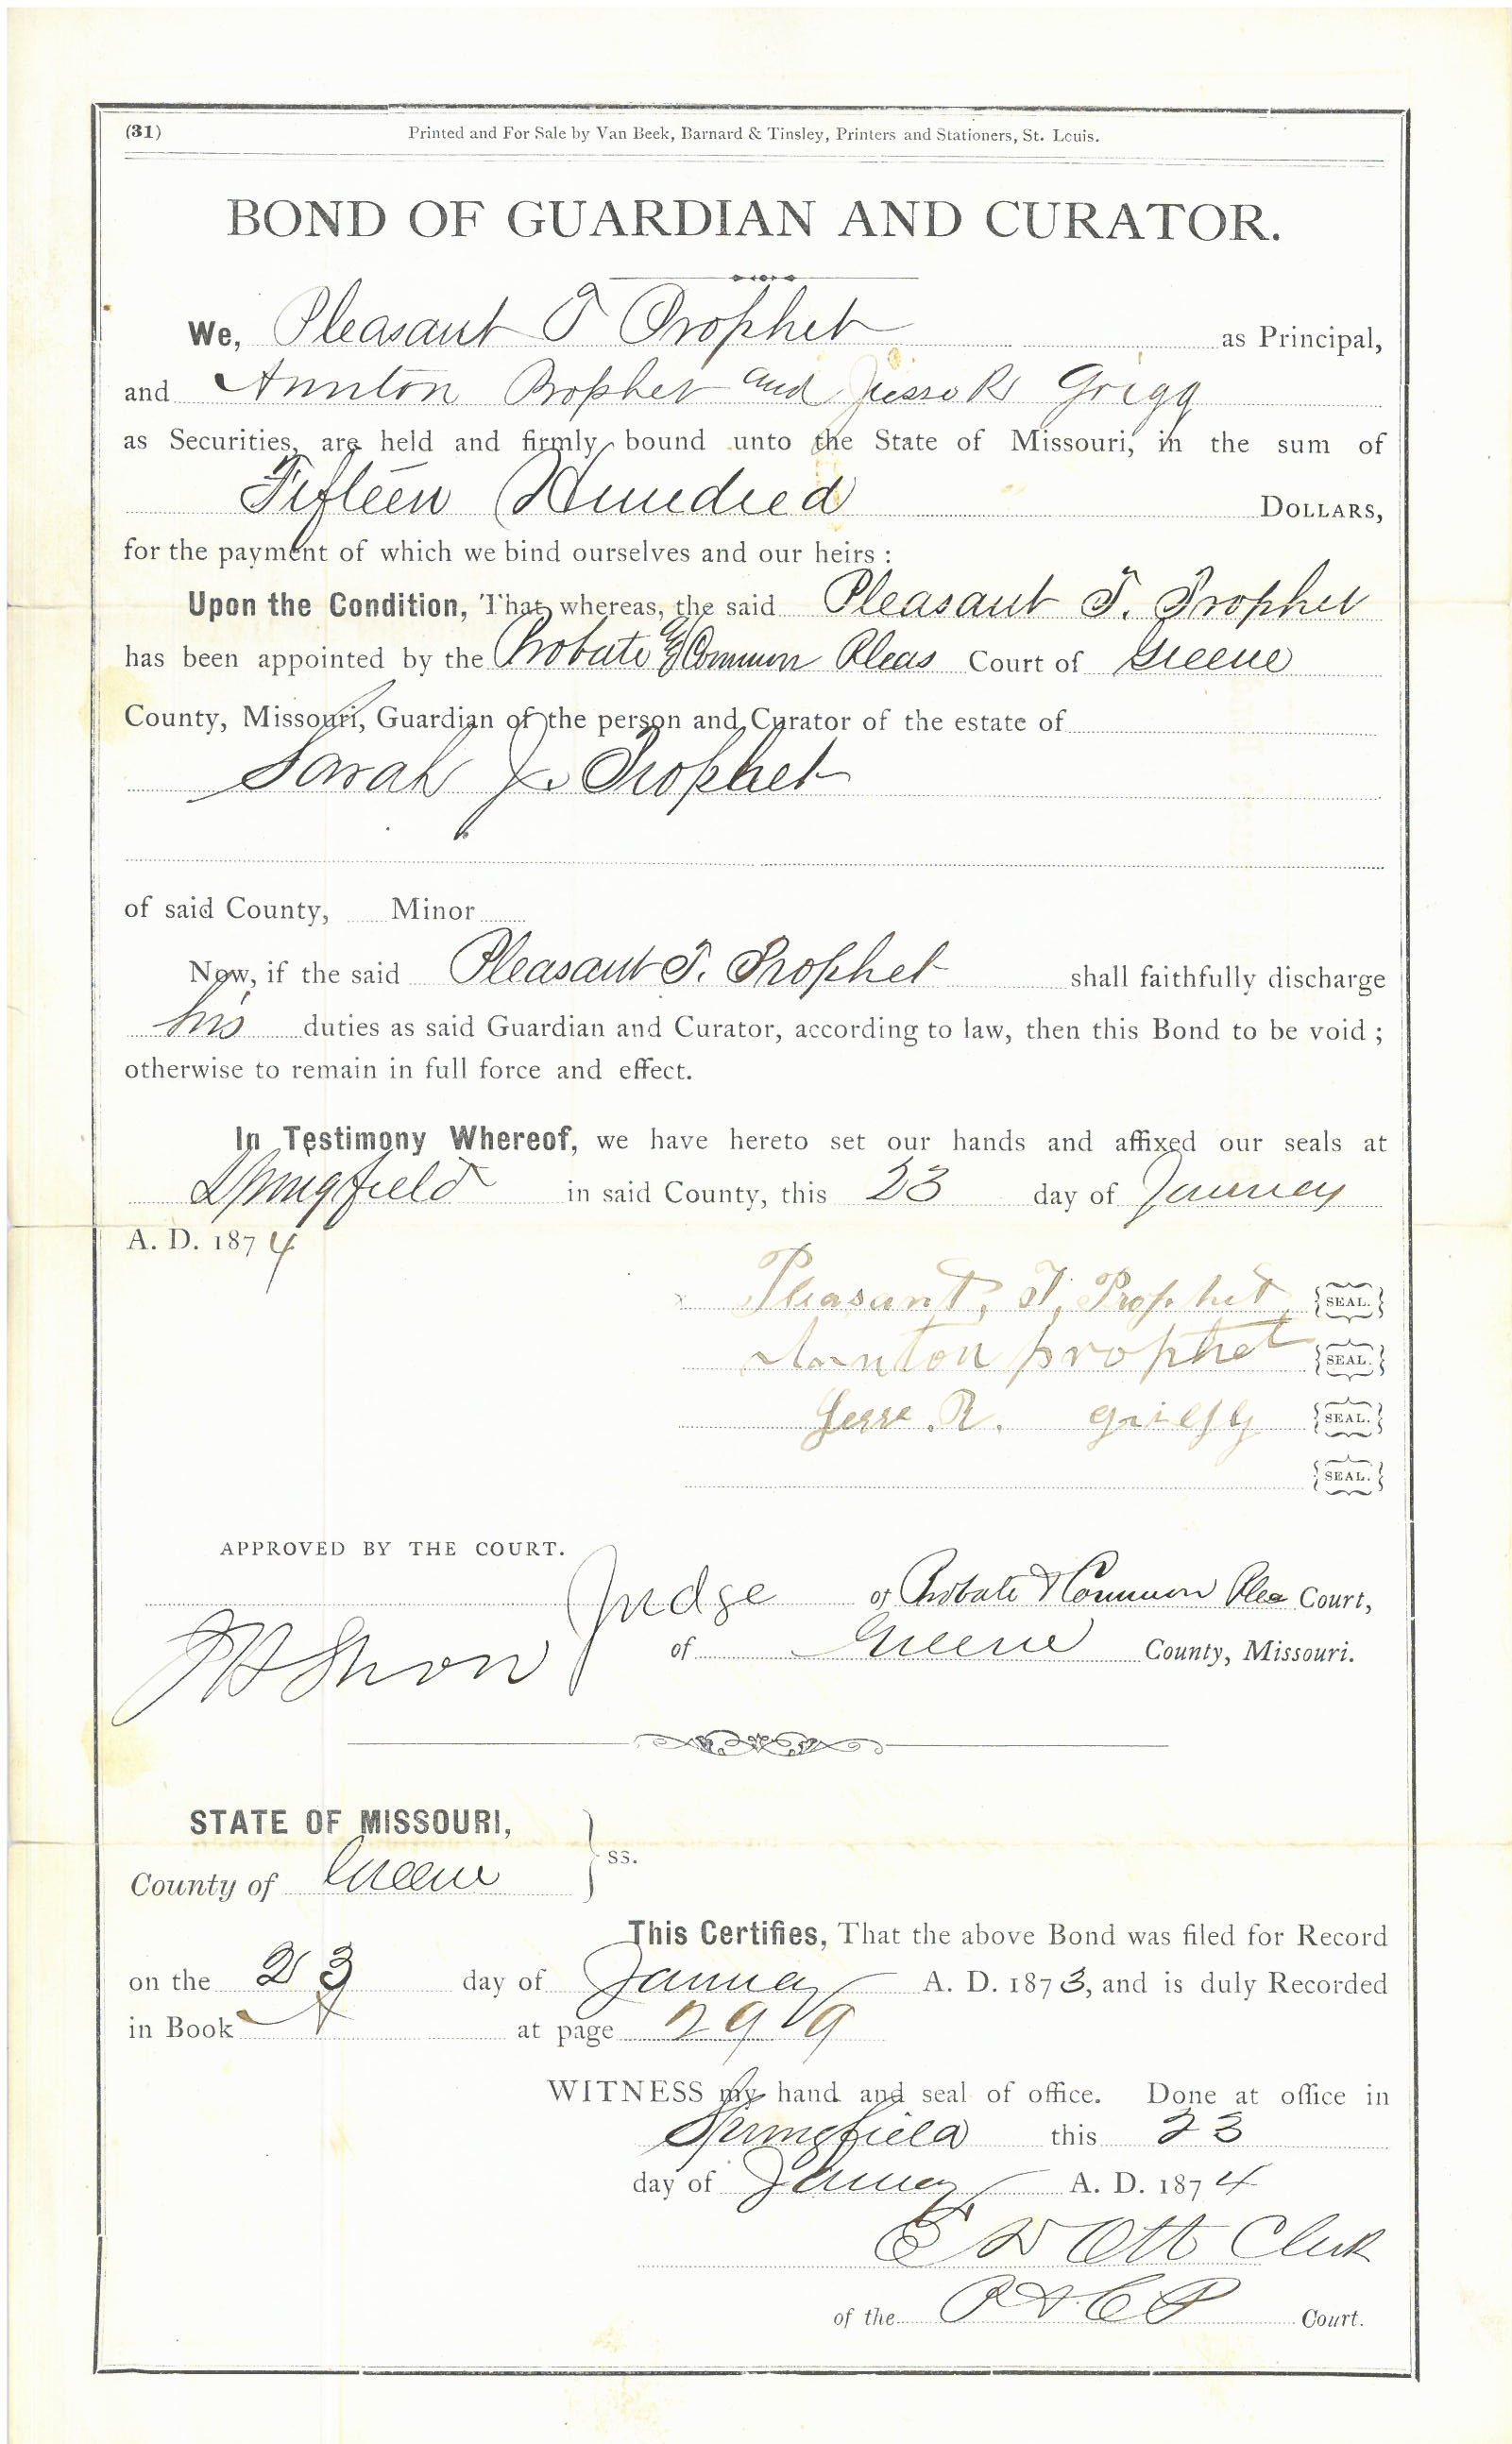 (31) Printed and For Sale by Van Beek, Barnard & Tinsley, Printers and Stationers, St. Louis.
BOND OF GUARDIAN AND CURATOR.
We, Pleasant T Prophet as Principal,
and Annton Prophet and Jesse R Grigg
as Securities, are held and firmly bound unto the State of Missouri, in the sum of
Fifteen Hundred DOLLARS,
for the payment of which we bind ourselves and our heirs :
Upon the Condition, That whereas, the said Pleasant T. Prophet
has been appointed by the Probate & Common Pleas Court of Greene
County, Missouri, Guardian of the person and Curator of the estate of
Sarah J. Prophet
of said County, Minor
Now, if the said Pleasant T. Prophet shall faithfully discharge
his duties as said Guardian and Curator, according to law, then this Bond to be void ;
otherwise to remain in full force and effect.
In Testimony Whereof, we have hereto set our hands and affixed our seals at
Springfield in said County, this 23 day of January
A. D. 1874
Pleasant, T, Prophet SEAL.
Annton prophet SEAL.
Jesse. R. grigg SEAL.
SEAL.
APPROVED BY THE COURT.
Judge of Probate & Common Plea Court,
of Greene County, Missouri.
STATE OF MISSOURI,
ss.
County of Greene
This Certifies, That the above Bond was filed for Record
on the 23 day of January A. D. 1873, and is duly Recorded
in Book A at page 299
WITNESS my hand and seal of office. Done at office in
Springfield this 23
day of January A. D. 1874
E D Ott Clerk
of the P & C P Court.